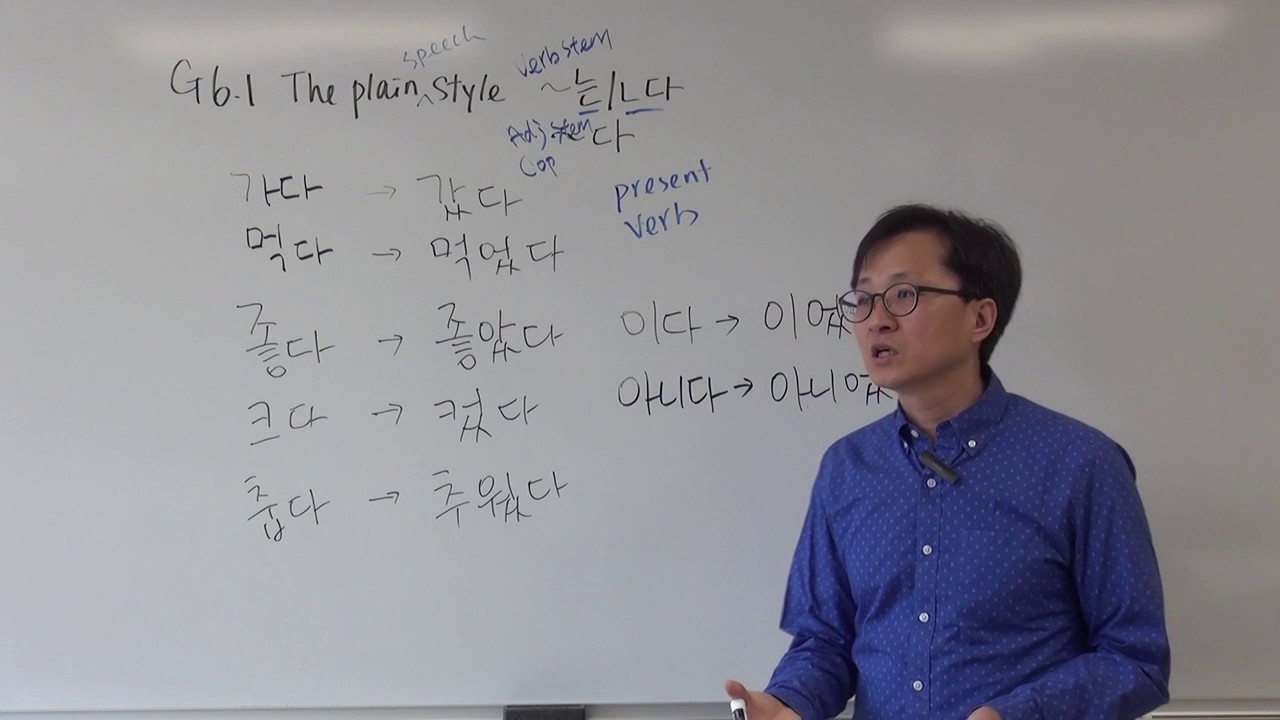 speech
verb stem
G6.1 The plain ^ style ~는/ㄴ다
Adj stem 다
Cop
present
verb
가다 → 갔다
먹다 → 먹었다
좋다 → 좋았다
크다 → 컸다
춥다 → 추웠다
이다 → 이었
아니다 → 아니었